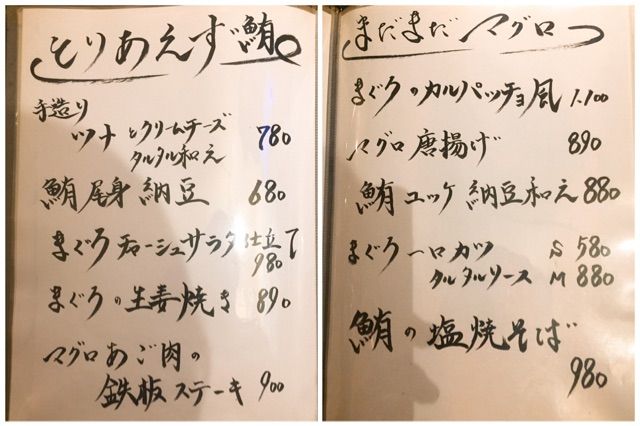 とりあえず鮪。
手造り
ツナとクリームチーズ
タルタル和え 780
鮪尾身納豆 680
まぐろチャーシューサラダ仕立て
980
まぐろの生姜焼き 890
マグロあご肉の
鉄板ステーキ 900
まだまだマグロ
まぐろのカルパッチョ風 1.100
マグロ唐揚げ 890
鮪ユッケ納豆和え 880
まぐろ一口カツ S 580
タルタルソース M 880
鮪の塩焼そば
980